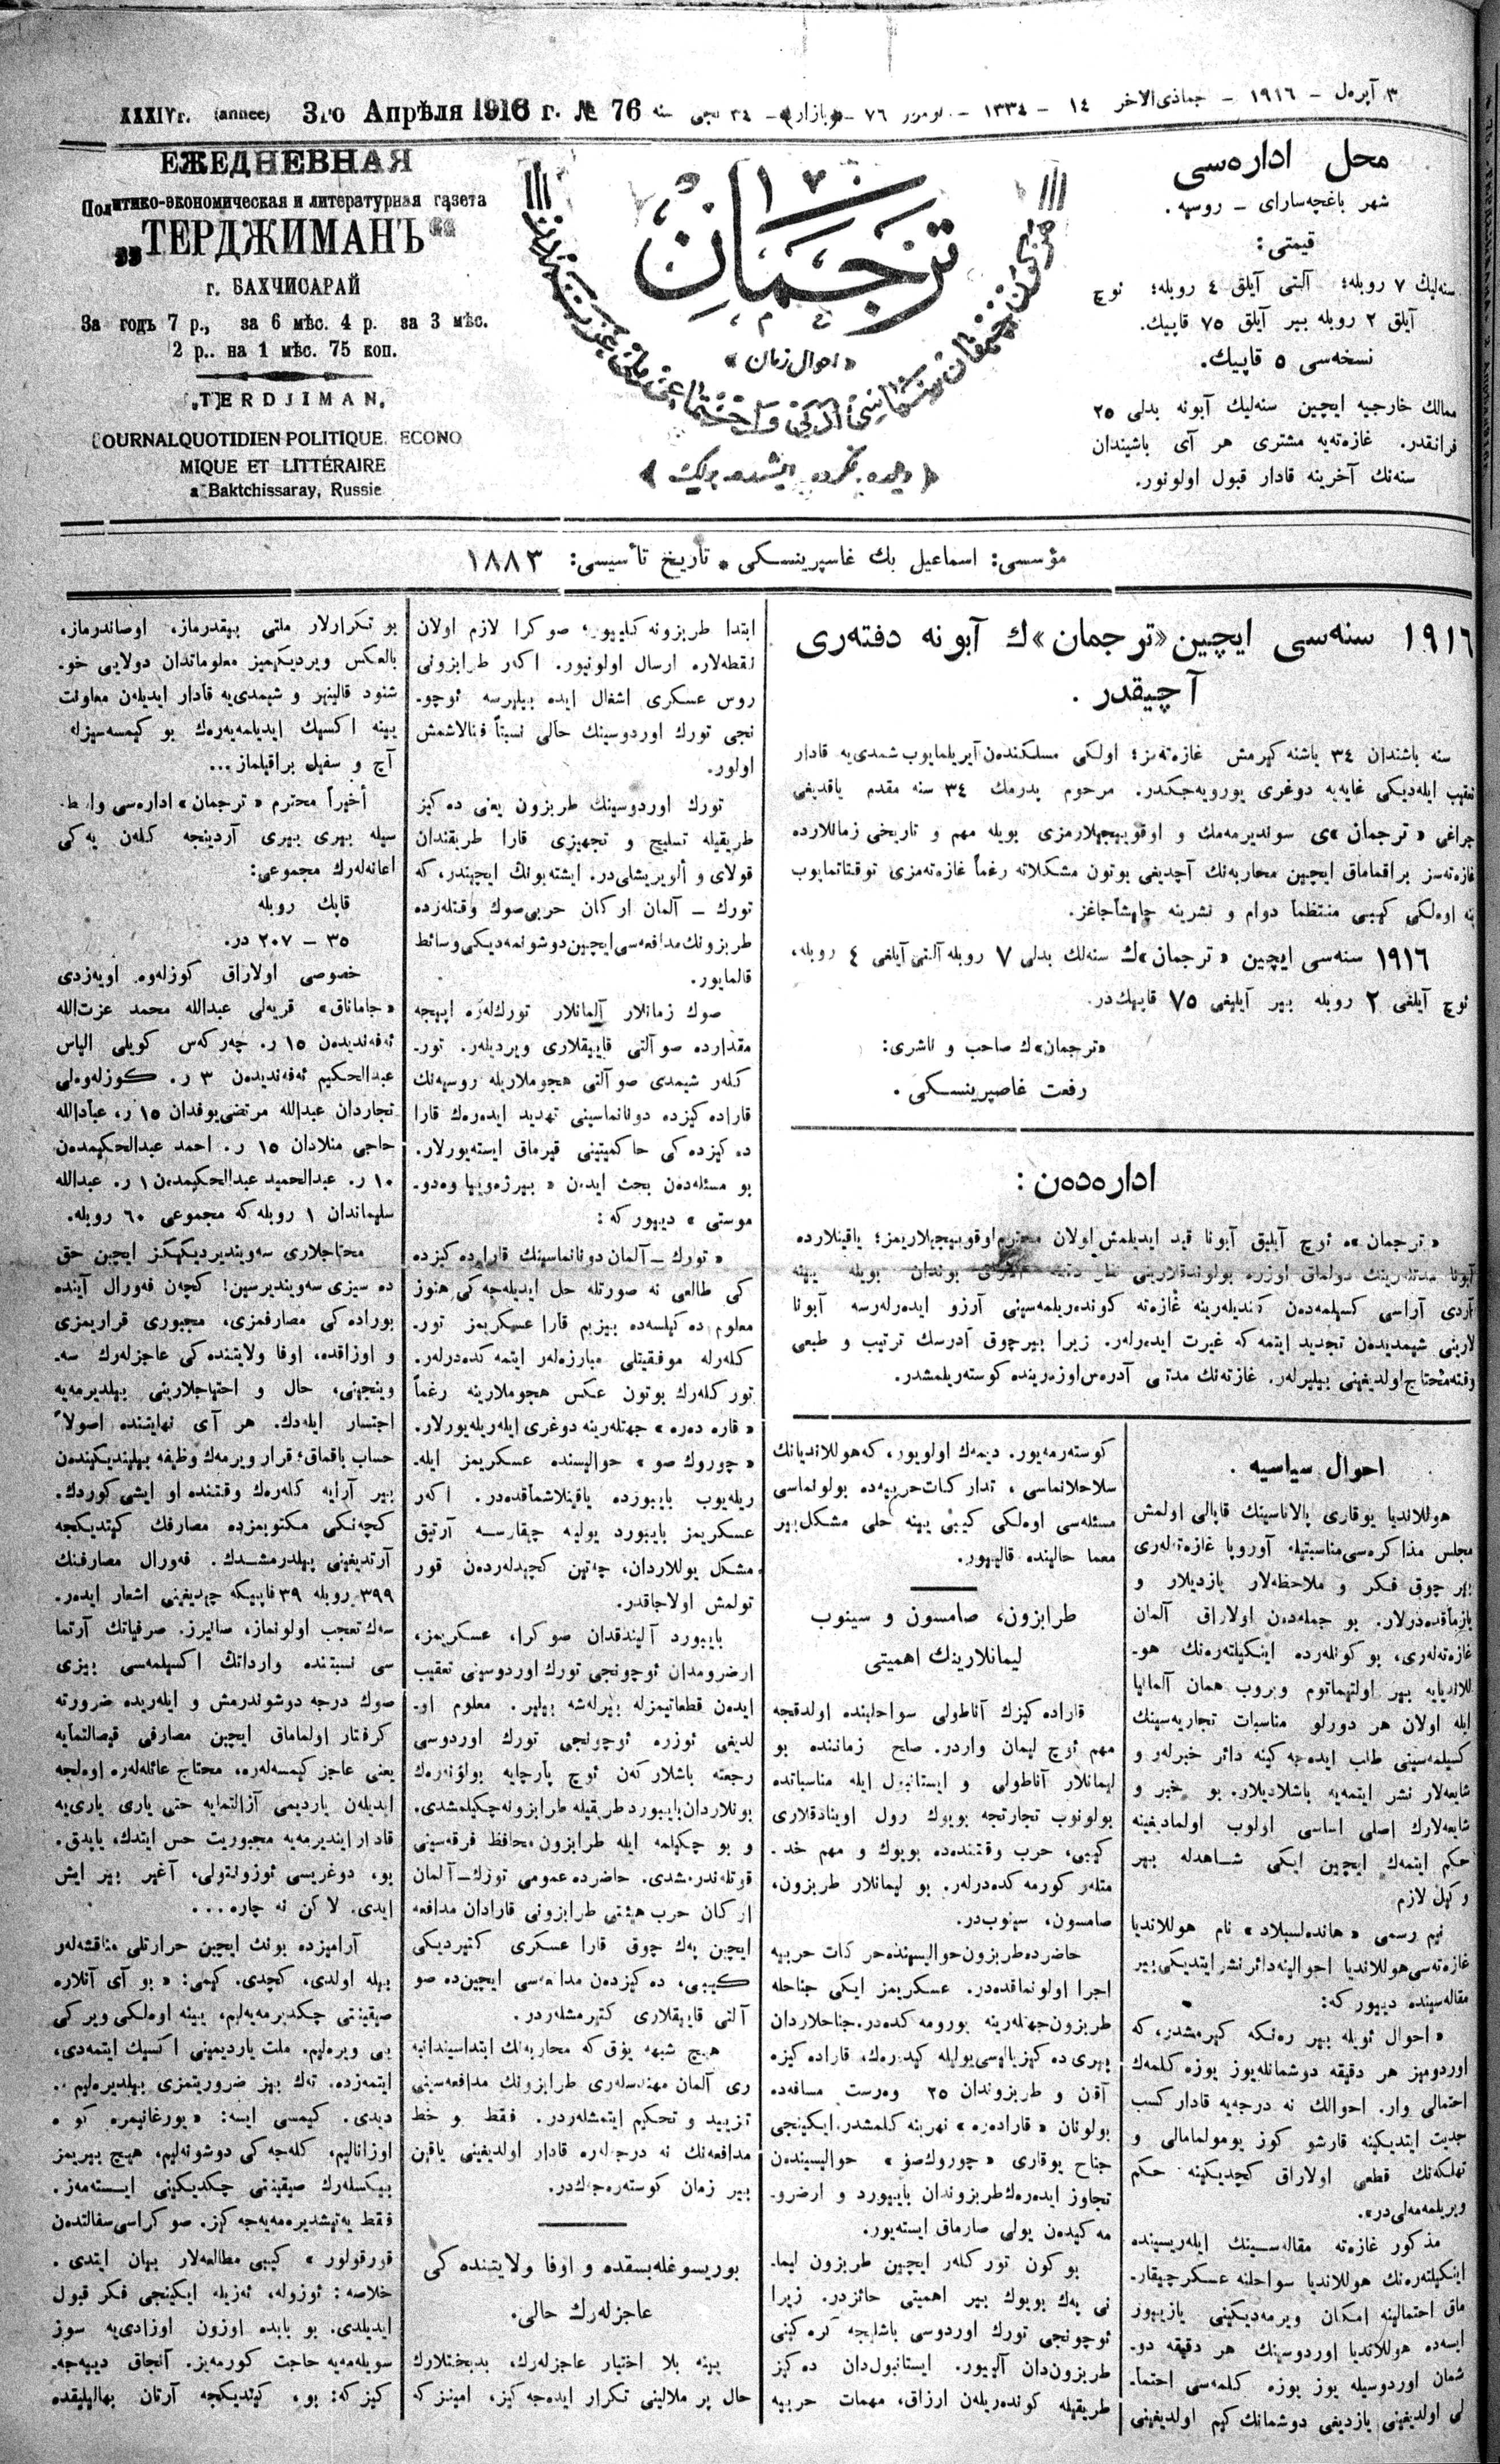 ٣ آپره‌ل – ١٩١٦ – جماذی‌الاخر ١٤ – ١٣٣٤ – نومرو ٧٦ – «بازار» – ٣٤ نجی سنه
XXXIVг. (annee) 3го Апрѣля 1916 г. № 76
ЕЖЕДНЕВНАЯ
Политико-экономическая и литературная газета
„ТЕРДЖИМАНЪ“
г. БАХЧИСАРАЙ
За годъ 7 р., за 6 мѣс. 4 р. за 3 мѣс.
2 р.. на 1 мѣс. 75 коп.
„TERDJIMAN„
JOURNALQUOTIDIEN POLITIQUE. ECONO
MIQUE ET LITTÉRAIRE
a Baktchissaray, Russie
ترجمان
«احوال زمان»
دیلده، فکرده، ایشده بیرلیك
محل اداره‌سی
شهر باغچه‌سارای – روسیه.
قیمتی:
سنه‌لیك ٧ روبله؛ آلتی آیلق ٤ روبله؛ ئوچ
آیلق ٢ روبله بیر آیلق ٧٥ قاپیك.
نسخه‌سی ٥ قاپیك.
ممالك خارجیه ایچین سنه‌لیك آبونه بدلی ٢٥
فرانقدر. غازه‌ته‌یه مشتری هر آی باشیندان
سنه‌نك آخرینه قادار قبول اولونور.
مؤسسی: اسماعیل بك غاسپرینسکی • تاریخ تأسیسی: ١٨٨٣
١٩١٦ سنه‌سی ایچین «ترجمان»ك آبونه دفته‌ری
آچیقدر.
سنه باشندان ٣٤ یاشنه کیرمش غازه‌ته‌مز؛ اولکی مسلکندن آیریلمایوب شمدی‌یه قادار
تعقیب ایله‌دیکی غایه‌یه دوغری یورویه‌جکدر. مرحوم پدرمك ٣٤ سنه مقدم یاقدیغی
چراغی «ترجمان»ی سوندیرمه‌مك و اوقویپجیلارمزی بویله مهم و تاریخی زمانلارده
غازه‌ته‌سز براقماماق ایچین محاربه‌نك آچدیغی بوتون مشکلاته رغماً غازه‌ته‌مزی توقتاتمایوب
ینه اوه‌لکی کیبی منتظماً دوام و نشرینه چالیشاجاغز.
١٩١٦ سنه‌سی ایچین «ترجمان»ك سنه‌لك بدلی ٧ روبله آلتی آیلغی ٤ روبله،
ئوچ آیلغی ٢ روبله بیر آیلیغی ٧٥ قاپیك‌در.
«ترجمان»ك صاحب و ناشری:
رفعت غاصپرینسکی.
اداره‌ده‌ن:
«ترجمان»ه ئوچ آیلیق آبونا قید ایدیلمش اولان محترم اوقوییجیلاریمز؛ یاقینلارده
آبونا مدتلرینك دولماق اوزره بولوندقلارینی
آردی آراسی کسیلمه‌دن کندیله‌رینه غازه‌ته کونده‌ریلمه‌سینی آرزو ایده‌رله‌رسه آبونا
لارینی شیمدیدن تجدید ایتمه که غیرت ایده‌رله‌ر. زیرا بیرچوق آدرسك ترتیب و طبعی
وقته محتاج اولدیغینی بیلیرله‌ر. غازته‌نك مدتی آدره‌س اوزه‌رینده کوسته‌ریلمشدر.
احوال سیاسیه.
هوللاندیا یوقاری پالاتاسینك قاپالی اولمش
مجلس مذاکره‌سی مناسبتیله آوروپا غازه‌ته‌له‌ری
بیر چوق فکر و ملاحظه‌لار یازدیلار و
یازماقده‌درلار. بو جمله‌دن اولاراق آلمان
غازه‌ته‌له‌ری، بو کونله‌رده اینکیلته‌ره‌نك هو–
للاندیایه بیر اولتیماتوم ویروب همان آلمانیا
ایله اولان هر دورلو مناسبات تجاریه‌سینك
کسیلمه‌سینی طلب ایده‌جه کینه دائر خبرلر و
شایعه‌لار نشر ایتمه‌یه باشلادیلار. بو خبر و
شایعه‌لارك اصلی اساسی اولوب اولمادیغینه
حکم ایتمه‌ك ایچین ایکی شاهدله بیر
وکیل لازم
نیم رسمی «هانده‌لسبلاد» نام هوللاندیا
غازه‌ته‌سی هوللاندیا احوالینه دائر نشر ایتدیکی بیر
مقاله‌سینده دییور که:
«احوال ئویله بیر ره‌نکه کیرمشدر، که
اوردومیز هر دقیقه دوشمانله یوز یوزه کلمه‌ك
احتمالی وار. احوالك نه درجه‌یه قادار کسب
جدیت ایتدیکینه قارشو کوز یومولمامالی و
تهلکه‌نك قطعی اولاراق کچدیکینه حکم
ویریلمه‌مه‌لی‌در».
مذکور غازه‌ته مقاله‌سینك ایله‌ریسینده
اینکیلته‌ره‌نك هوللاندیا سواحلنه عسکر چیقار–
ماق احتمالینه امکان ویرمه‌دیکینی یازییور
ایسه‌ده هوللاندیا اوردوسینك هر دقیقه دو–
شمان اوردوسیله یوز یوزه کلمه‌سی احتما–
لی اولدیغینی یازدیغی دوشمانك کیم اولدیغینی
کوسته‌رمه‌یور. دیمه‌ك اولویور، که هوللاندیانك
سلاحلانماسی، تدارکات حربییه‌ده بولونماسی
مسئله‌سی اوه‌لکی کیبی ینه حلی مشکل بیر
معما حالینده قالییور.
طرابزون، صامسون و سینوب
لیمانلارینك اهمیتی
قاراده‌کیزك آناطولی سواحلینده اولدقجه
مهم ئوچ لیمان واردر. صلح زماننده بو
لیمانلار آناطولی و ایستانبول ایله مناسباتده
بولونوب تجارتجه بویوك رول اوینادقلاری
کیبی، حرب وقتنده‌ده بویوك و مهم خد–
متله‌ر کورمه کده‌درله‌ر. بو لیمانلار طربزون،
صامسون، سینوب‌در.
حاضرده طربزون حوالیسینده حرکات حربیه
اجرا اولونماقده‌در. عسکریمز ایکی جناحله
طربزون جهتله‌رینه یورومه کده‌در. جناحلاردان
بیری ده‌کیز یالیسی یولیله کیده‌رك، قاراده کیزه
آقان و طربزوندان ٢٥ وه‌رست مسافه‌ده
بولونان «قاراده‌ره» نهرینه کلمشدر. ایکینجی
جناح یوقاری «چوروك‌صو» حوالیسیندن
تجاوز ایده‌رك طربزوندان بایبورد و ارضرو–
مه کیدن یولی صارماق ایسته‌یور.
بو کون تورکله‌ر ایچین طربزون لیما–
نی په‌ك بویوك بیر اهمیتی حائزدر. زیرا
ئوچونجی تورك اوردوسی باشلیجه کره کینی
طربزون‌دان آلییور. ایستانبول‌دان ده‌کیز
طریقیله کونده‌ریله‌ن ارزاق، مهمات حربیه
ابتدا طربزونه کلییور؛ صوکرا لازم اولان
نقطه‌لاره ارسال اولونیور. اکر طرابزونی
روس عسکری اشغال ایده بیلیرسه ئوچو–
نجی تورك اوردوسینك حالی نسبتاً فنالاشمش
اولور.
تورك اوردوسینك طربزون یعنی ده‌کیز
طریقیله تسلیح و تجهیزی قارا طریقندان
قولای و ألویریشلی‌در. ایشته بونك ایچیندر، که
تورك – آلمان ارکان حربی صوك وقتله‌رده
طربزونك مدافعه‌سی ایچین دوشونمه‌دیکی وسائط
قالمایور.
صوك زمانلار آلمانلار تورك‌له‌ره اییجه
مقدارده صو آلتی قاییقلاری ویردیله‌ر. تور–
کله‌ر شیمدی صو آلتی هجوملاریله روسیه‌نك
قاراده کیزده دونانماسینی تهدید ایده‌ره‌ك قارا
ده کیزده کی حاکمیتینی قیرماق ایسته‌یورلار.
بو مسئله‌دن بحث ایدن «بیرژه‌وییا وه‌دو–
موستی» دییور که:
«تورك – آلمان دونانماسینك قاراده کیزده
کی طالعی نه صورتله حل ایدیله‌جه کی هنوز
معلوم ده کیلسه‌ده بیزیم قارا عسکریمز تور–
کله‌رله موفقیتلی مبارزه‌له‌ر ایتمه کده‌درله‌ر.
تورکله‌رك بوتون عکس هجوملارینه رغماً
«قاره ده‌ره» جهتله‌رینه دوغری ایله‌ریله‌یورلار.
«چوروك صو» حوالیسنده عسکریمز ایله–
ریله‌یوب بایبورده یاقینلاشماقده‌در. اکر
عسکریمز بایبورد یولیه چیقارسه آرتیق
مشکل یوللاردان، چه‌تین کچیدله‌رده‌ن قور
تولمش اولاجاقدر.
بایبورد آلیندقدان صوکرا، عسکریمز،
ارضرومدان ئوچونجی تورك اوردوسینی تعقیب
ایدن قطعاتیمزله بیرله‌شه بیلیر. معلوم او–
لدیغی ئوزره ئوچونجی تورك اوردوسی
رجعته باشلارکن ئوچ پارچایه بولؤنه‌رك
بونلاردان بایبورد طریقیله طرابزونه چکیلمشدی.
و بو چکیلمه ایله طرابزون محافظ فرقه‌سینی
قوتله‌ندرمشدی. حاضرده عمومی تورك – آلمان
ارکان حرب هیئتی طرابزونی قارادان مدافعه
ایچین په‌ك چوق قارا عسکری کتیردیکی
کیبی، ده کیزدن مدافعه‌سی ایچین‌ده صو
آلتی قاییقلاری کتیرمشله‌ردر.
هیچ شبهه یوق که محاربه‌نك ابتداسیندانبه
ری آلمان مهندسله‌ری طرابزونك مدافعه‌سینی
تزیید و تحکیم ایتمشله‌ردر. فقط و خط
مدافعه‌نك نه درجه‌له‌ره قادار اولدیغینی یاقین
بیر زمان کوسته‌ره‌جك‌در.
بوریسوغله‌بسقده و اوفا ولایتنده کی
عاجزله‌رك حالی.
ینه بلا اختیار عاجزله‌رك، بدبختلارك
حال پر ملالینی تکرار ایده‌جه کیز، امینز که
بو تکرارلار ملتی بیقدرماز، اوصاندرماز،
بالعکس ویردیکیمیز معلوماتدان دولایی خو–
شنود قالیرلر و شیمدی‌یه قادار ایدیله‌ن معاونت
ینه اکسیك ایدیلمه‌یه‌ره‌ك بو کیمسه‌سیزله
آچ و سفیل براقیلماز...
أخیراً محترم «ترجمان» اداره‌سی واسط–
سیله بیری بیری آردینجه کله‌ن یه کی
اعانه‌له‌رك مجموعی:
قاپك روبله
٣٥ – ٢٠٧ در.
خصوصی اولاراق کوزله‌وه اویه‌زدی
«جاماناق» قریه‌لی عبدالله محمد عزت‌الله
ئه‌فه‌ندیده‌ن ١٥ ر. چه‌رکه‌س کویلی الیاس
عبدالحکیم ئه‌فه‌ندیده‌ن ٣ ر. کوزله‌وه‌لی
تجاردان عبدالله مرتضی‌یوفدان ١٥ ر، عبادالله
حاجی منلادان ١٥ ر. احمد عبدالحکیمده‌ن
١٠ ر. عبدالحمید عبدالحکیمده‌ن ١ ر. عبدالله
سلیماندان ١ روبله که مجموعی ٦٠ روبله.
محتاجلاری سه‌ویندیردیکیکز ایچین حق
ده سیزی سه‌ویندیرسین! کچه‌ن فه‌ورال آینده
بوراده کی مصارفمزی، مجبوری قراریمزی
و اوزاقده، اوفا ولایتنده کی عاجزله‌رك سه–
وینجینی، حال و احتیاجلارینی بیلدیرمه‌یه
اجتسار ایله‌دك. هر آی نهایتنده اصولاً
حساب یاقماق؛ قرار ویرمه‌ك وظیفه بیلیندیکیندن
بیر آرایه کله‌رك وقتنده او ایشی کوردك.
کچه‌نکی مکتوبمزده مصارفك کیتدیکجه
آرتدیغینی بیلدرمشدك. فه‌ورال مصارفنك
٣٩٩ روبله ٣٩ قاپیکه چیدیغینی اشعار ایده‌ر.
سه‌ك تعجب اولونماز، صانیرز. صرفیاتك آرتما
سی نسبتنده وارداتك اکسیلمه‌سی بیزی
صوك درجه دوشوندرمش و ایله‌ریده ضرورته
کرفتار اولماماق ایچین مصارفی قیصالتمایه
یعنی عاجز کیمسه‌له‌ره، محتاج عائله‌له‌ره اوه‌لجه
ایدیله‌ن یاردیمی آزالتمایه حتی یاری یاری‌یه
قادار ایندیرمه‌یه مجبوریت حس ایتدك، یاپدق.
بو، دوغریسی ئوزونتولی، آغیر بیر ایش
ایدی. لاکن نه چاره...
آرامیزده بونك ایچین حرارتلی مناقشه‌له‌ر
بیله اولدی، کچدی. کیمی: «بو آی آنلاره
صیقینتی چکدیرمه‌یه‌لیم، ینه اوه‌لکی ویرکی
یی ویره‌لیم. ملت یاردیمینی اکسیك ایتمه‌دی،
ایتمه‌زده. ته‌ك بیز ضروریتمزی بیلدیره‌لیم..
دیدی. کیمسی ایسه: «یورغانیمزه کوره
اوزانالیم، کله‌جه کی دوشونه‌لیم، هیچ بیریمز
بیکسله‌رك صیقینتی چکدیکینی ایسته‌مه‌ز.
فقط یه‌تیشدیره‌مه‌یه‌جه کیز. صوکراسی سفالتدن
قورقولور» کیبی مطالعه‌لار بیان ایتدی.
خلاصه: ئوزوله، ئه‌زیله ایکینجی فکر قبول
ایدیلدی. بو بابده اوزون اوزادی‌یه سوز
سویله‌مه‌یه حاجت کورمه‌یز. آنجاق دییه‌جه–
کیز که: بو، کیتدیکجه آرتان بهالیلیقده